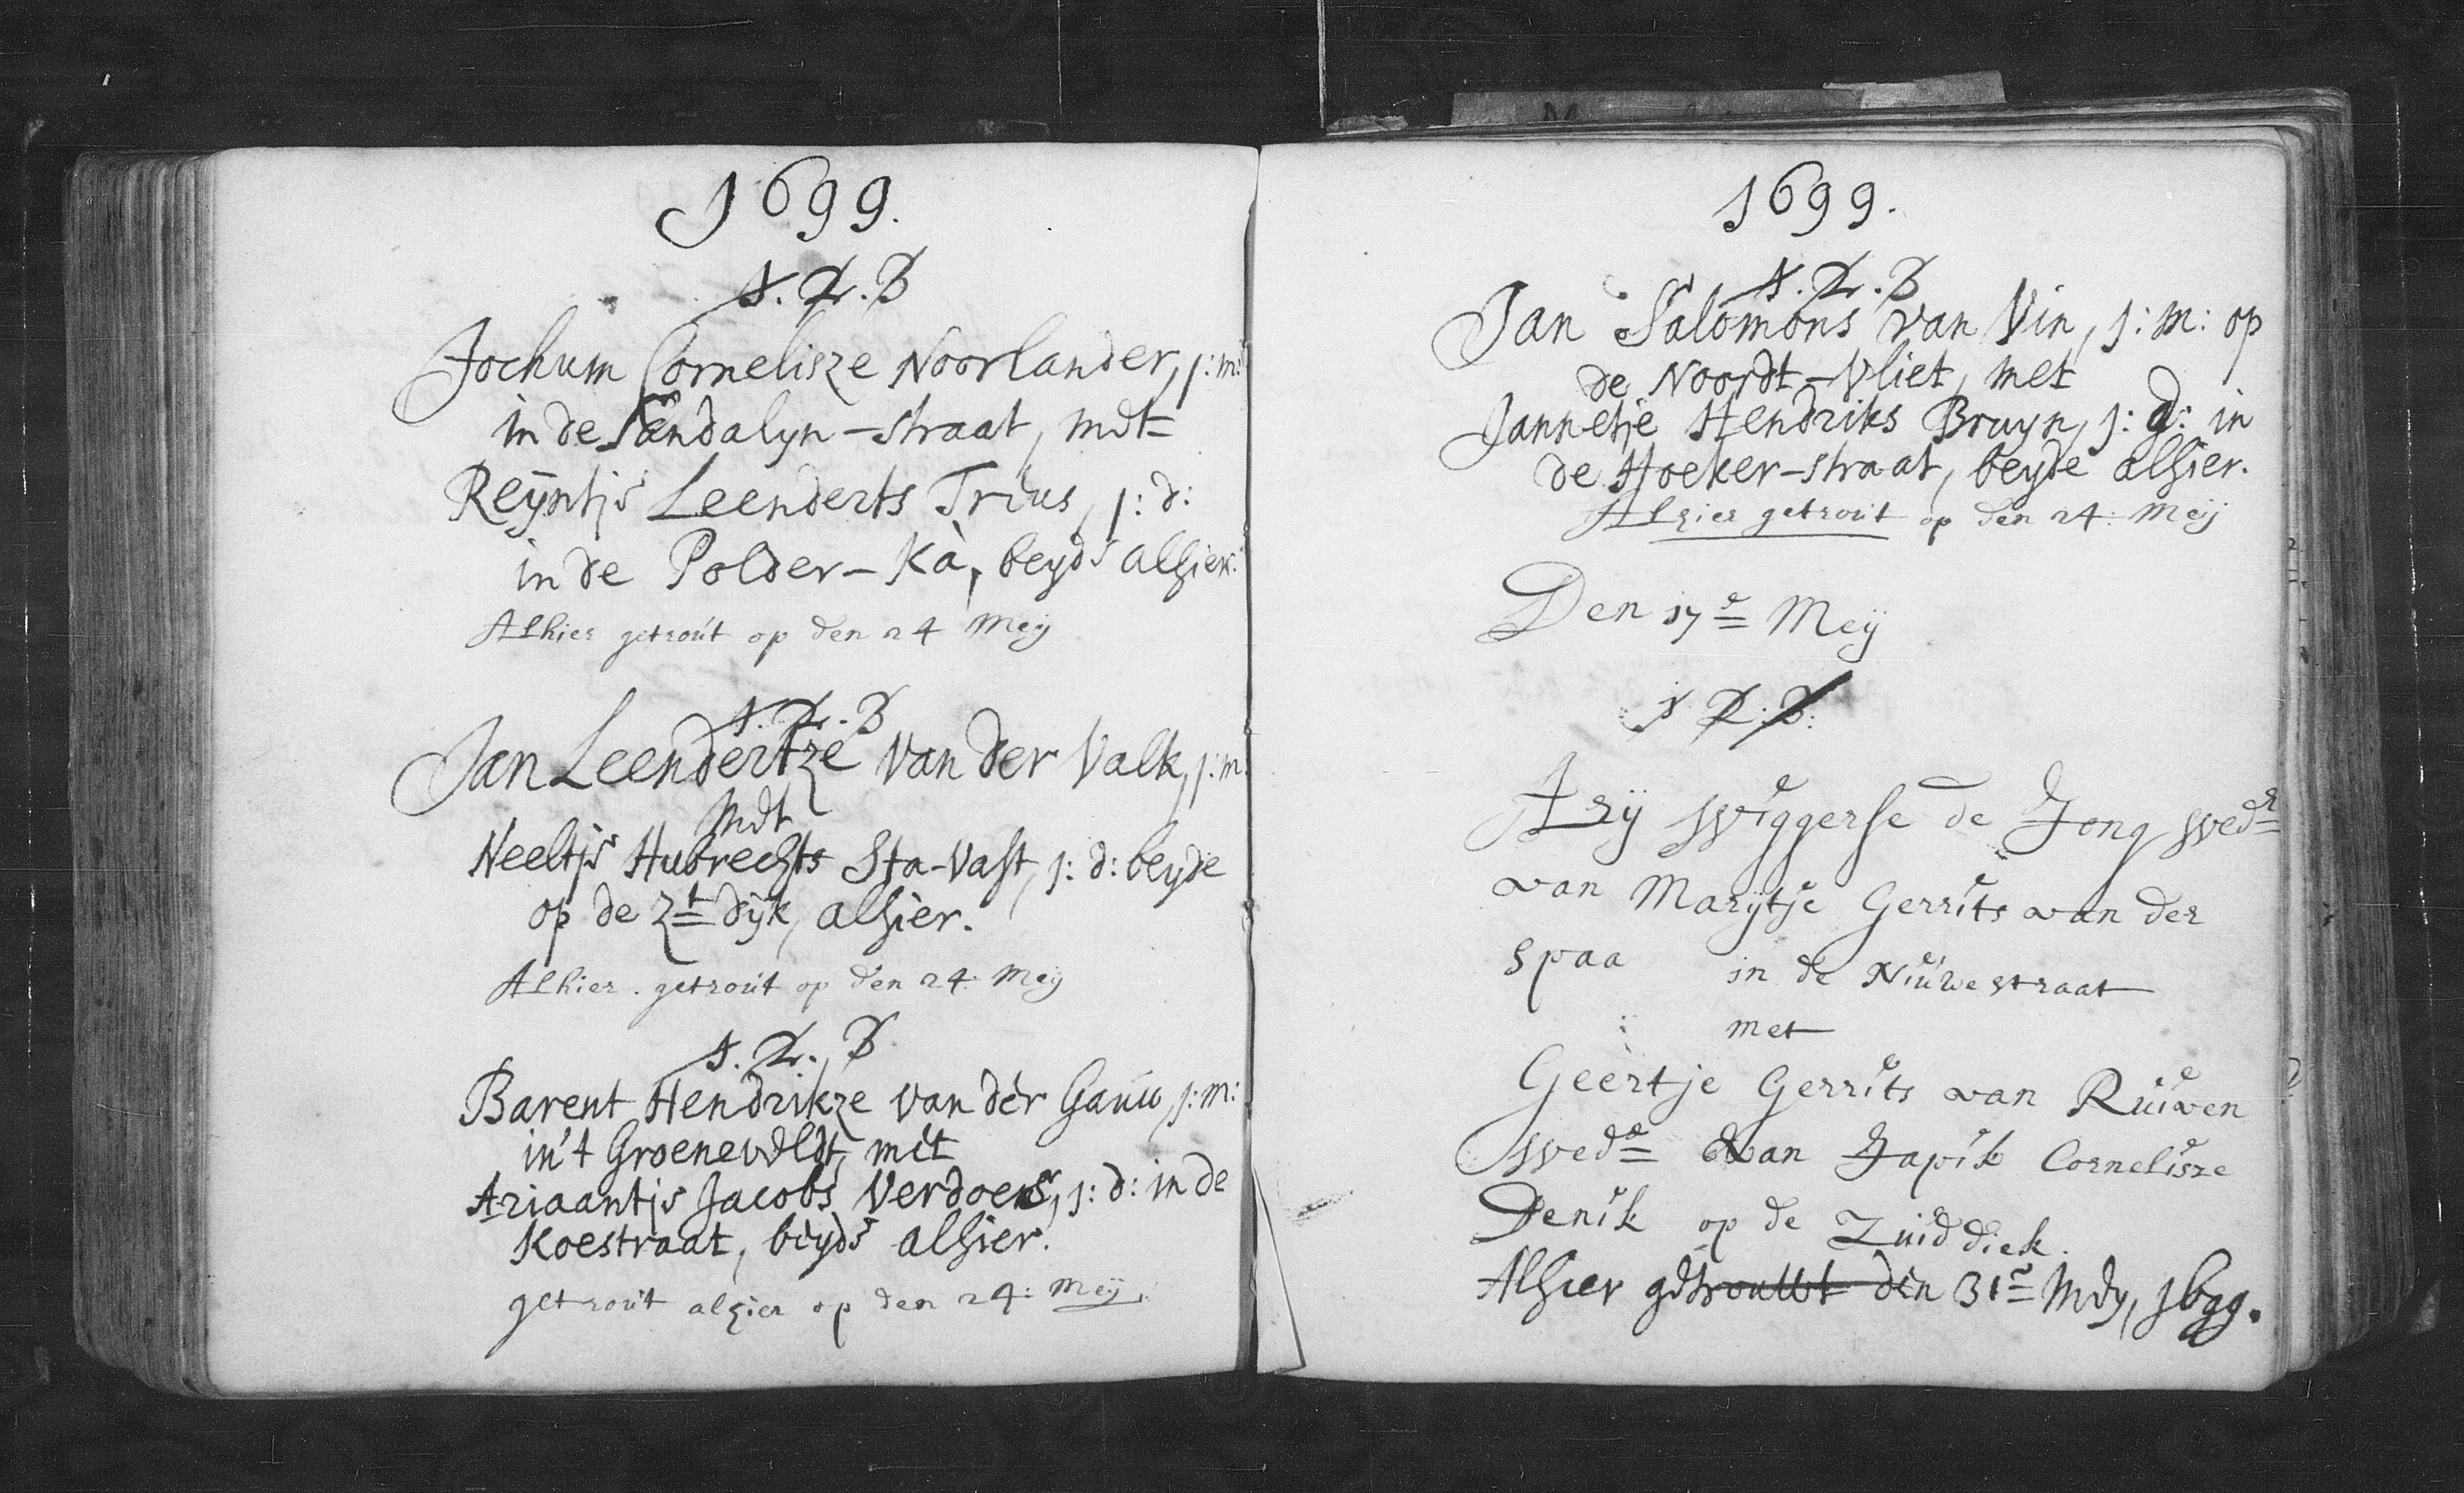 1699.
1. 2. 3
Jochum Cornelisze Noorlander, j: m:
in de Sandalyn-straat, met
Reijntje Leenderts Trius, j: d:
in de Polder-Ka, beyde alhier.
Alhier getrout op den 24 Meij
1. 2. 3
Jan Leendertze van der Valk, j: m.
met
Neeltje Hubrechts Sta-Vast, j: d: beyde
op de Zt dijk, alhier.
Alhier. getrout op den 24 Meij
1. 2. 3
Barent Hendrikze van der Gauw j: m:
in't Groeneveldt, met
Ariaantje Jacobs Verdoes, j: d: in de
Koestraat, beyde alhier.
getrout alhier op den 24: Meij.
1699.
1. 2. 3
Jan Salomons van Vin, j: m: op
de Noordt-Vliet, met
Jannetje Hendriks Bruyn, j: d: in
de Hoeker-straat, beyde alhier.
Alhier getrout op den 24: Meij
Den 17e Meij
1 2: 3:
Arij Wiggerse de Jong wedr
van Marijtje Gerrits van der
Spaa in de Niuwe straat
met
Geertje Gerrits van Ruiven
wede van Japik Cornelisze
Denik op de Zuid diek.
Alhier getrouwt den 31e Mey, 1699.